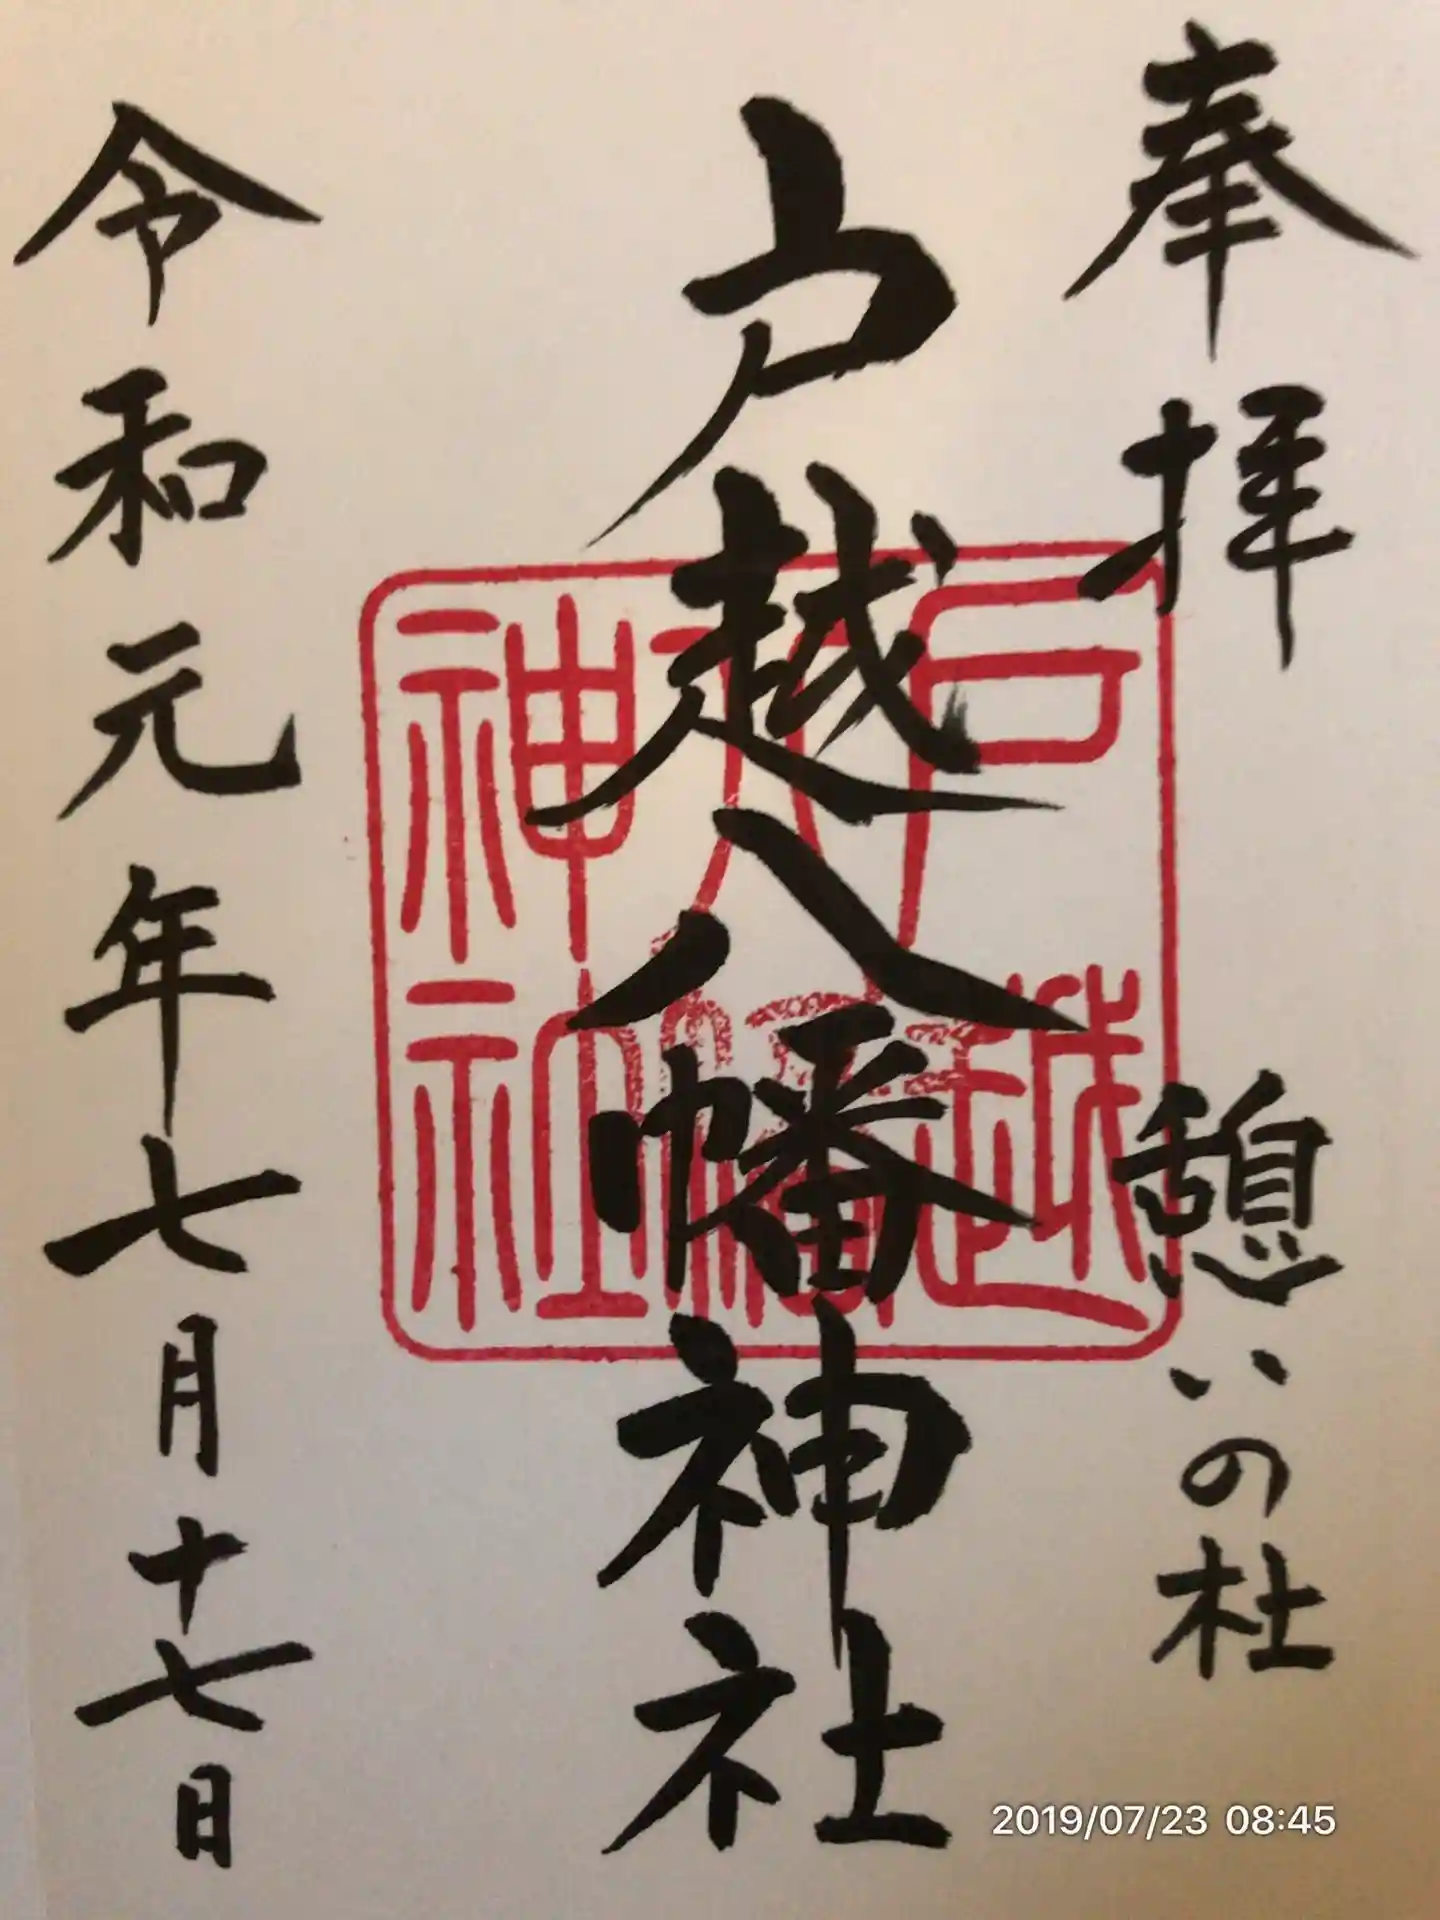 奉拝
憩いの杜
戸越八幡神社
戸越
八幡
神社
令和元年七月十七日
2019/07/23 08:45